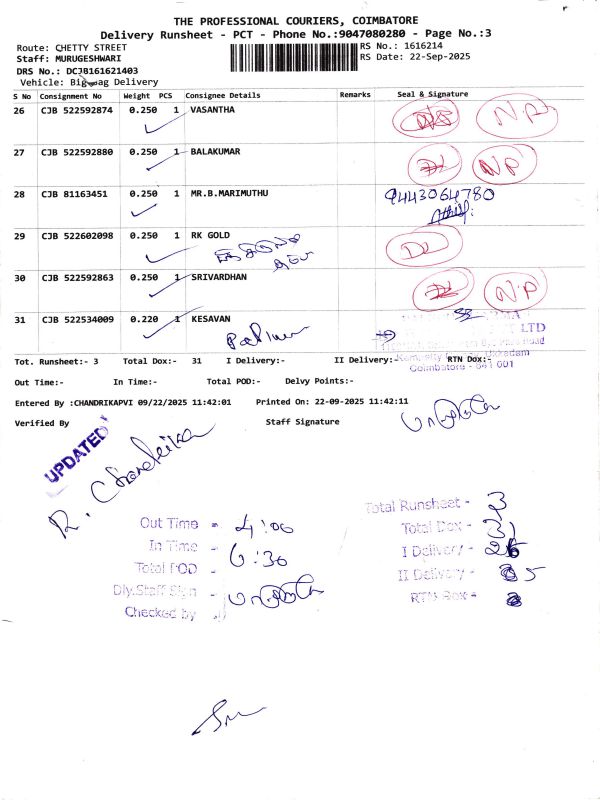 THE PROFESSIONAL COURIERS, COIMBATORE
Delivery Runsheet - PCT - Phone No.:9047080280 - Page No.:3
Route: CHETTY STREET
Staff: MURUGESHWARI
DRS No.: DCJB161621403
Vehicle: Big Bag Delivery
RS No.: 1616214
RS Date: 22-Sep-2025
S No Consignment No Weight PCS Consignee Details Remarks Seal & Signature
26 CJB 522592874 0.250 1 VASANTHA NP
27 CJB 522592880 0.250 1 BALAKUMAR NP
28 CJB 81163451 0.250 1 MR.B.MARIMUTHU 9443064780
29 CJB 522602098 0.250 1 RK GOLD DL
30 CJB 522592863 0.250 1 SRIVARDHAN NP
31 CJB 522534009 0.220 1 KESAVAN
Coimbatore - 641 001
Tot. Runsheet:- 3 Total Dox:- 31 I Delivery:- II Delivery:- RTN Dox:-
Out Time:- In Time:- Total POD:- Delvy Points:-
Entered By :CHANDRIKAPVI 09/22/2025 11:42:01 Printed On: 22-09-2025 11:42:11
Verified By Staff Signature
UPDATED
R. Chandrika
Total Runsheet - 3
Out Time - 4:00
Total Dox - 31
In Time - 6:30
I Delivery - 26
Total POD -
II Delivery - 5
Dly.Staff Sign -
RTN Dox -
Checked by -